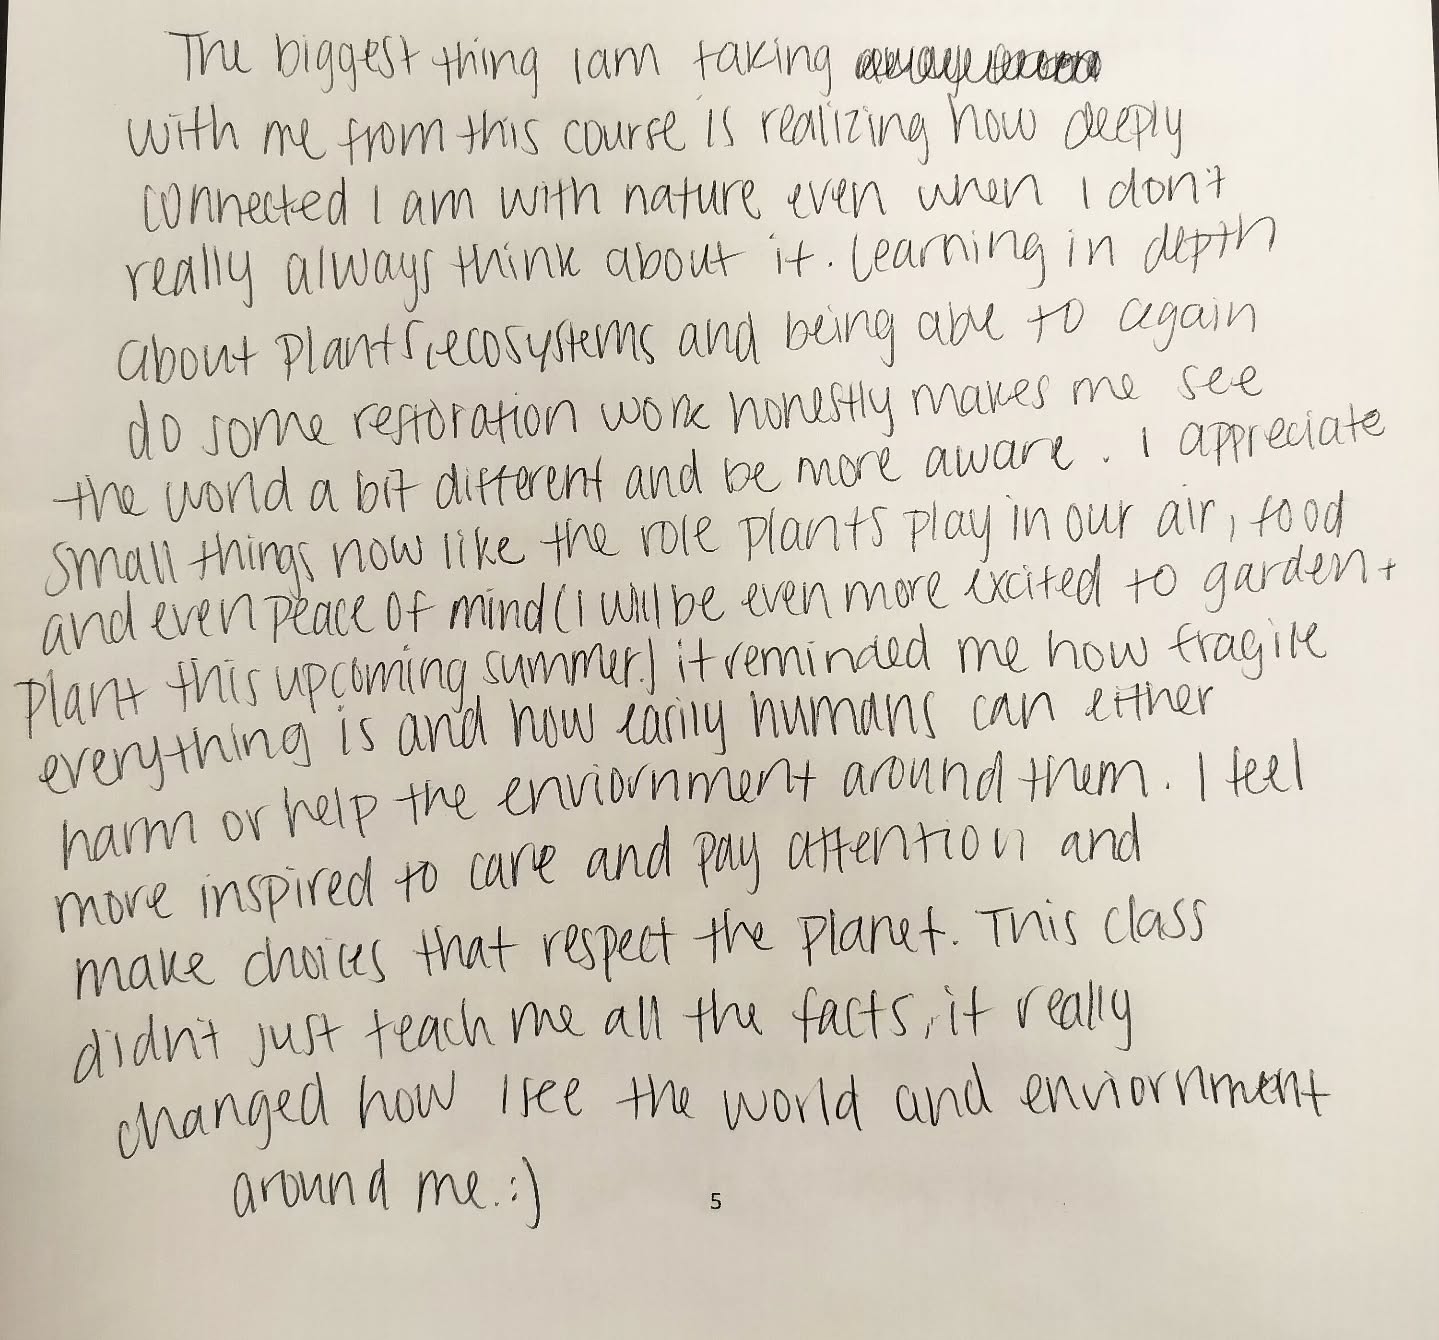 The biggest thing I am taking
with me from this course is realizing how deeply
connected I am with nature even when I don't
really always think about it. Learning in depth
about plants, ecosystems and being able to again
do some restoration work honestly makes me see
the world a bit different and be more aware. I appreciate
small things now like the role plants play in our air, food
and even peace of mind (I will be even more excited to garden +
plant this upcoming summer.) it reminded me how fragile
everything is and how easily humans can either
harm or help the enviornment around them. I feel
more inspired to care and pay attention and
make choices that respect the planet. This class
didn't just teach me all the facts, it really
changed how I see the world and enviornment
around me. :)
5